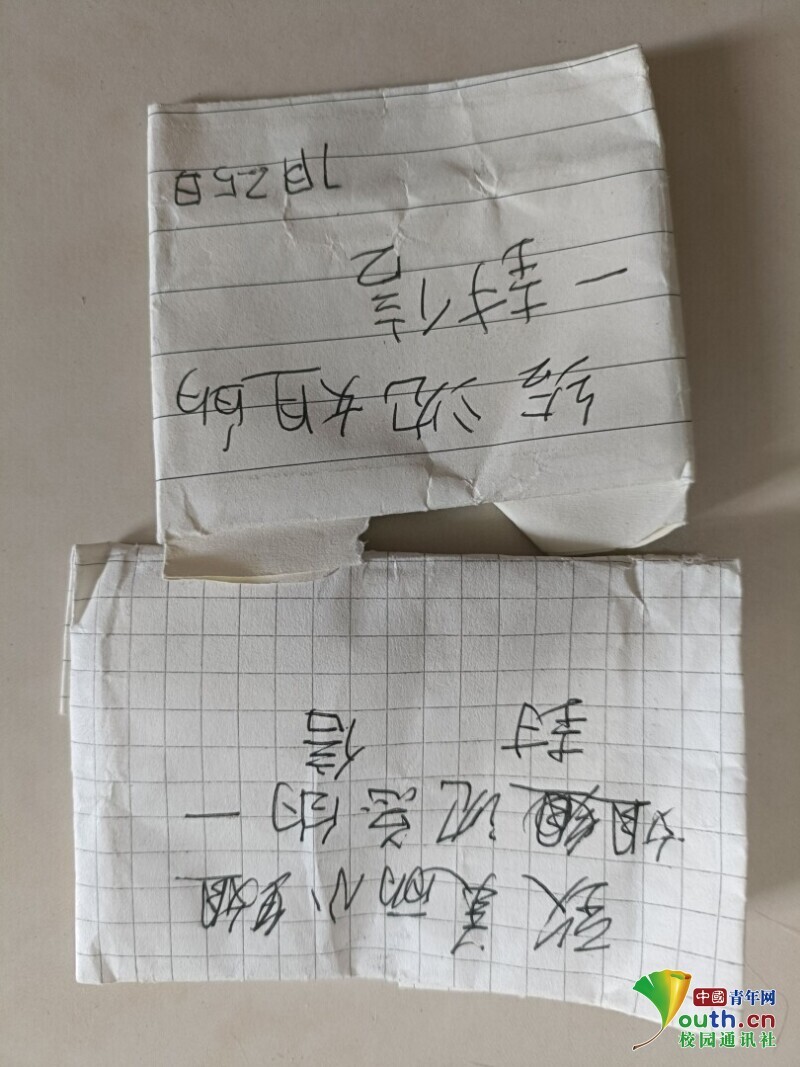 致美丽小姐
姐沈的一
封信
给沈姐的
一封信
7月25日
中國青年网
youth.cn
校园通讯社